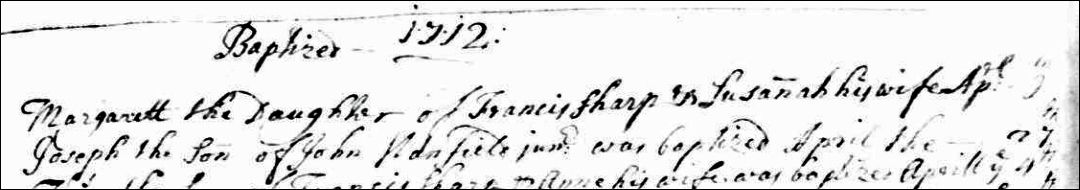 Baptized 1712
Margarett the Daughter of Francis Sharp & Susanah his wife Apl
Joseph the Son of John junr was baptized April the 27
Francis Sharp & Anne his wife was baptized Aprill ye